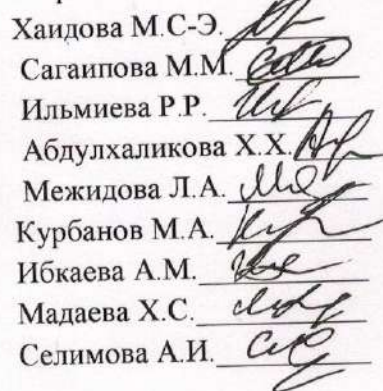 Хаидова М.С-Э.
Сагаипова М.М.
Ильмиева Р.Р.
Абдулхаликова Х.Х.
Межидова Л.А.
Курбанов М.А.
Ибкаева А.М.
Мадаева Х.С.
Селимова А.И.